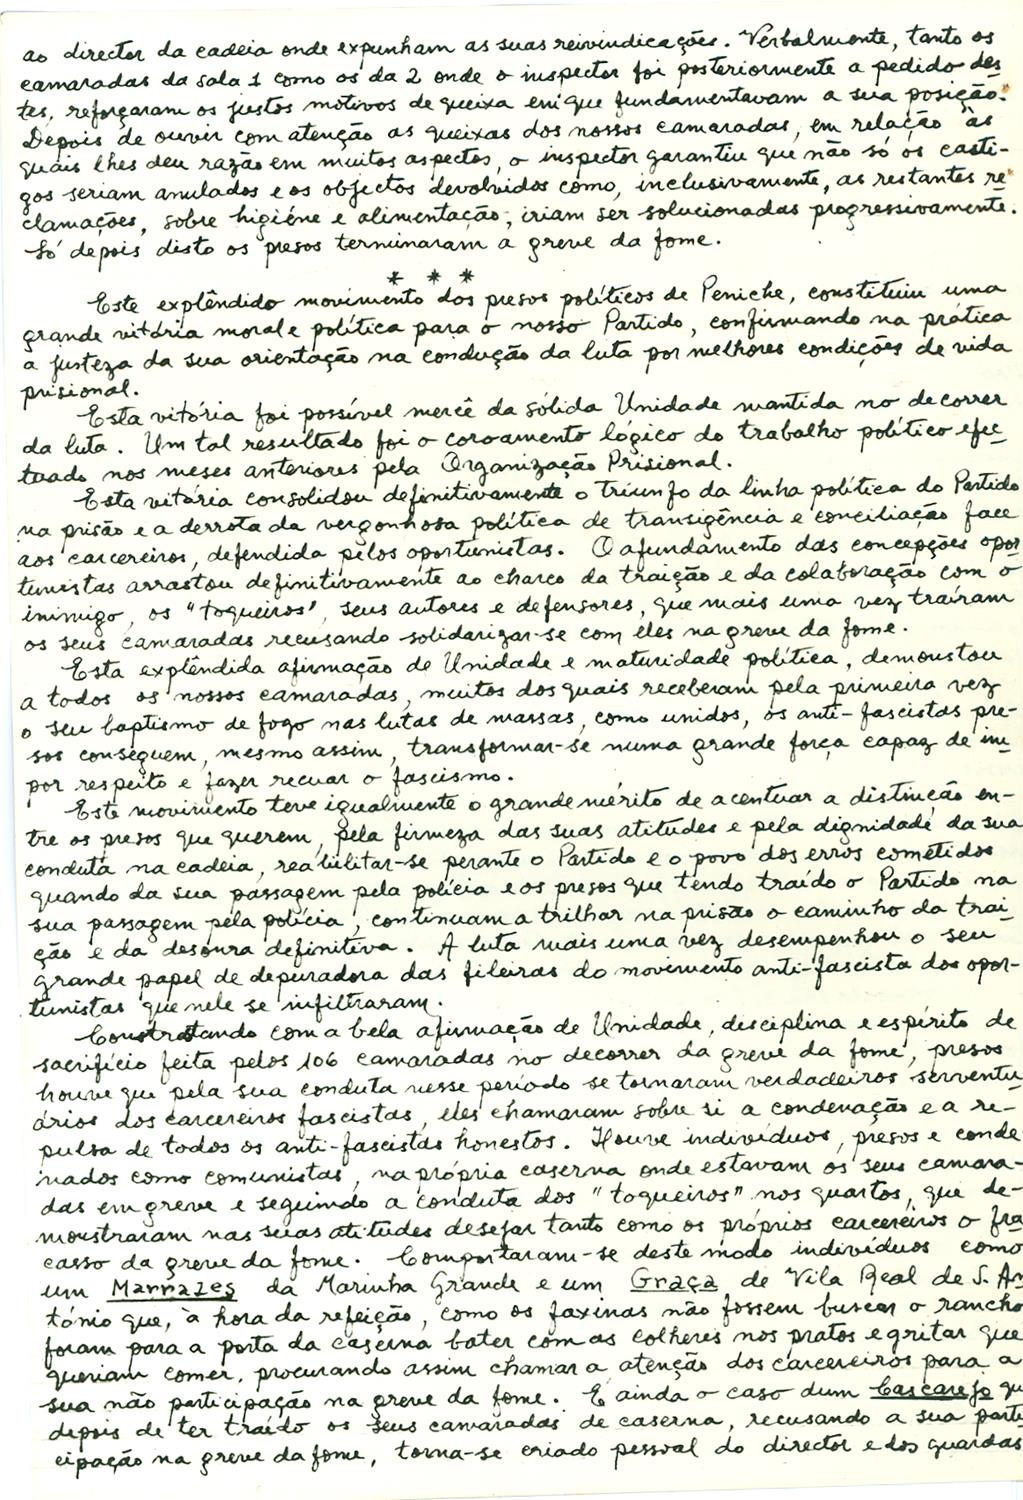 ao director da cadeia onde expunham as suas reivindicações. Verbalmente, tanto os
camaradas da sala 1 como os da 2 onde o inspector foi posteriormente a pedido des-
tes, reforçaram os justos motivos de queixa em que fundamentavam a sua posição.
Depois de ouvir com atenção as queixas dos nossos camaradas, em relação às
quais lhes deu razão em muitos aspectos, o inspector garantiu que não só os casti-
gos seriam anulados e os objectos devolvidos como, inclusivamente, as restantes re-
clamações, sobre higiéne e alimentação, iriam ser solucionadas progressivamente.
Só depois disto os presos terminaram a greve da fome.
* * *
Este explêndido movimento dos presos políticos de Peniche, constituiu uma
grande vitória moral e política para o nosso Partido, confirmando na prática
a justeza da sua orientação na condução da luta por melhores condições de vida
prisional.
Esta vitória foi possível mercê da sólida Unidade mantida no decorrer
da luta. Um tal resultado foi o coroamento lógico do trabalho político efec-
tuado nos meses anteriores pela Organização Prisional.
Esta vitória consolidou definitivamente o triunfo da linha política do Partido
na prisão e a derrota da vergonhosa política de transigência e conciliação face
aos carcereiros, defendida pelos oportunistas. O afundamento das concepções opor-
tunistas arrastou definitivamente ao charco da traição e da colaboração com o
inimigo, os "toqueiros", seus autores e defensores, que mais uma vez traíram
os seus camaradas recusando solidarizar-se com eles na greve da fome.
Esta explêndida afirmação de Unidade e maturidade política, demoustou
a todos os nossos camaradas, muitos dos quais receberam pela primeira vez
o seu baptismo de fogo nas lutas de massas, como unidos, os anti-fascistas pre-
sos conseguem, mesmo assim, transformar-se numa grande força capaz de im-
por respeito e fazer recuar o fascismo.
Este movimento teve igualmente o grande mérito de acentuar a distinção en-
tre os presos que querem, pela firmeza das suas atitudes e pela dignidade da sua
conduta na cadeia, reabilitar-se perante o Partido e o povo dos erros cometidos
quando da sua passagem pela polícia e os presos que tendo traído o Partido na
sua passagem pela polícia, continuam a trilhar na prisão o caminho da trai-
ção e da desonra definitiva. A luta mais uma vez desempenhou o seu
grande papel de depuradora das fileiras do movimento anti-fascista dos opor-
tunistas que nele se infiltraram.
Constratando com a bela afirmação de Unidade, disciplina e espírito de
sacrifício feita pelos 106 camaradas no decorrer da greve da fome, presos
houve que pela sua conduta nesse período se tornaram verdadeiros serventu-
ários dos carcereiros fascistas, eles chamaram sobre si a condenação e a re-
pulsa de todos os anti-fascistas honestos. Houve indivíduos, presos e conde-
nados como comunistas, na própria caserna onde estavam os seus camara-
das em greve e seguindo a conduta dos "toqueiros" nos quartos, que de-
monstraram nas suas atitudes desejar tanto como os próprios carcereiros o fra-
casso da greve da fome. Comportaram-se deste modo indivíduos como
um Marrazes da Marinha Grande e um Graça de Vila Real de S. An-
tónio que, à hora da refeição, como os faxinas não fossem buscar o rancho
foram para a porta da caserna bater com as colheres nos pratos e gritar que
queriam comer, procurando assim chamar a atenção dos carcereiros para a
sua não participação na greve da fome. E ainda o caso dum Cascarejo qu
depois de ter traído os seus camaradas de caserna, recusando a sua parti-
cipação na greve da fome, torna-se criado pessoal do director e dos guardas